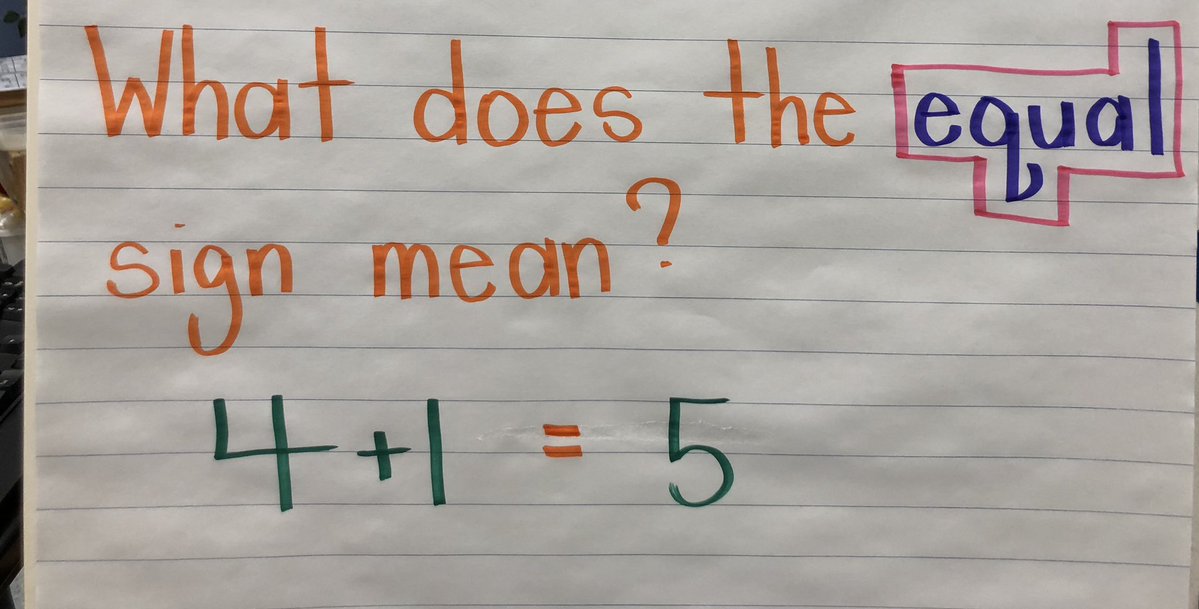 What does the equal
sign mean?
4+1 = 5